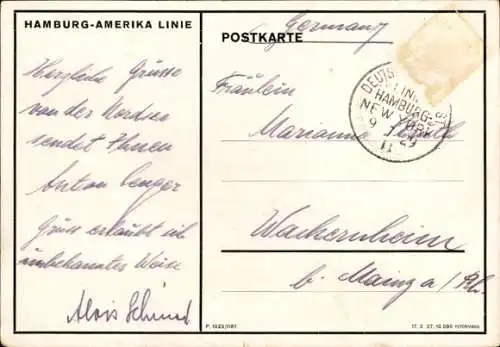 HAMBURG-AMERIKA LINIE
Herzliche Grüsse
von der Nordsee
sendet Ihnen
Anton
Gruss erlaubt sich
unbekannter Weise
Alois Schmid
POSTKARTE
Germany
Fräulein
Marianne
Wackernheim
b. Mainz a/Rh.
DEUTSCH
LINIE
HAMBURG-
NEW YORK
9 29
II
P. 1023/1161
17. 3. 27. 10 000